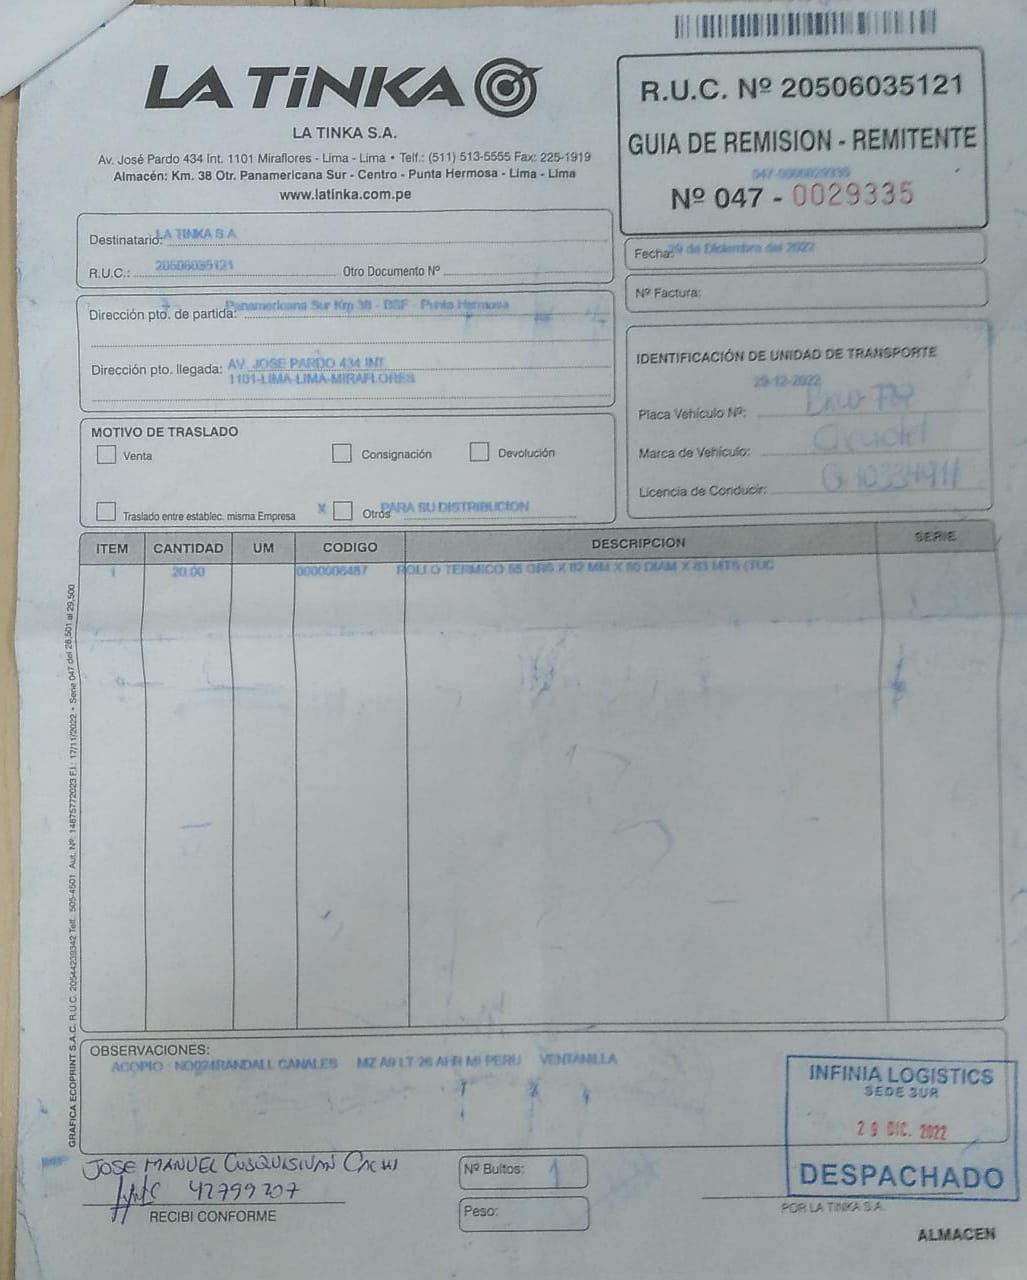 LA TiNKA
LA TINKA S.A.
Av. José Pardo 434 Int. 1101 Miraflores - Lima - Lima • Telf.: (511) 513-5555 Fax: 225-1919
Almacén: Km. 38 Otr. Panamericana Sur - Centro - Punta Hermosa - Lima - Lima
www.latinka.com.pe
R.U.C. Nº 20506035121
GUIA DE REMISION - REMITENTE
047-0000029335
Nº 047 - 0029335
Destinatario: LA TINKA S.A.
R.U.C.: 20506035121 Otro Documento Nº
Fecha: 29 de Diciembre del 2022
Nº Factura:
Dirección pto. de partida: Panamericana Sur Km 38 - BSF Punta Hermosa
Dirección pto. llegada: AV. JOSE PARDO 434 INT
1101-LIMA-LIMA-MIRAFLORES
IDENTIFICACIÓN DE UNIDAD DE TRANSPORTE
29-12-2022
Placa Vehículo Nº:
Marca de Vehículo:
Licencia de Conducir:
MOTIVO DE TRASLADO
Venta Consignación Devolución
Traslado entre establec. misma Empresa X Otros PARA SU DISTRIBUCION
ITEM CANTIDAD UM CODIGO DESCRIPCION SERIE
1 20.00 0000006487 ROLLO TERMICO 55 GRS X 82 MM X 80 DIAM X 83 MTS (TUC
GRAFICA ECOPRINT S.A.C. R.U.C. 20544239342 Telf. 505-4501 Aut. Nº: 14875772023 F.I.: 17/11/2022 • Serie 047 del 28,501 al 29,500
OBSERVACIONES:
ACOPIO : NO024RANDALL CANALES MZ A9 LT 26 AHR MI PERU VENTANILLA
INFINIA LOGISTICS
SEDE SUR
29 DIC. 2022
DESPACHADO
JOSE MANUEL CUSQUISIVAN CACHI
42799207
RECIBI CONFORME
Nº Bultos: 1
Peso:
POR LA TINKA S.A.
ALMACEN